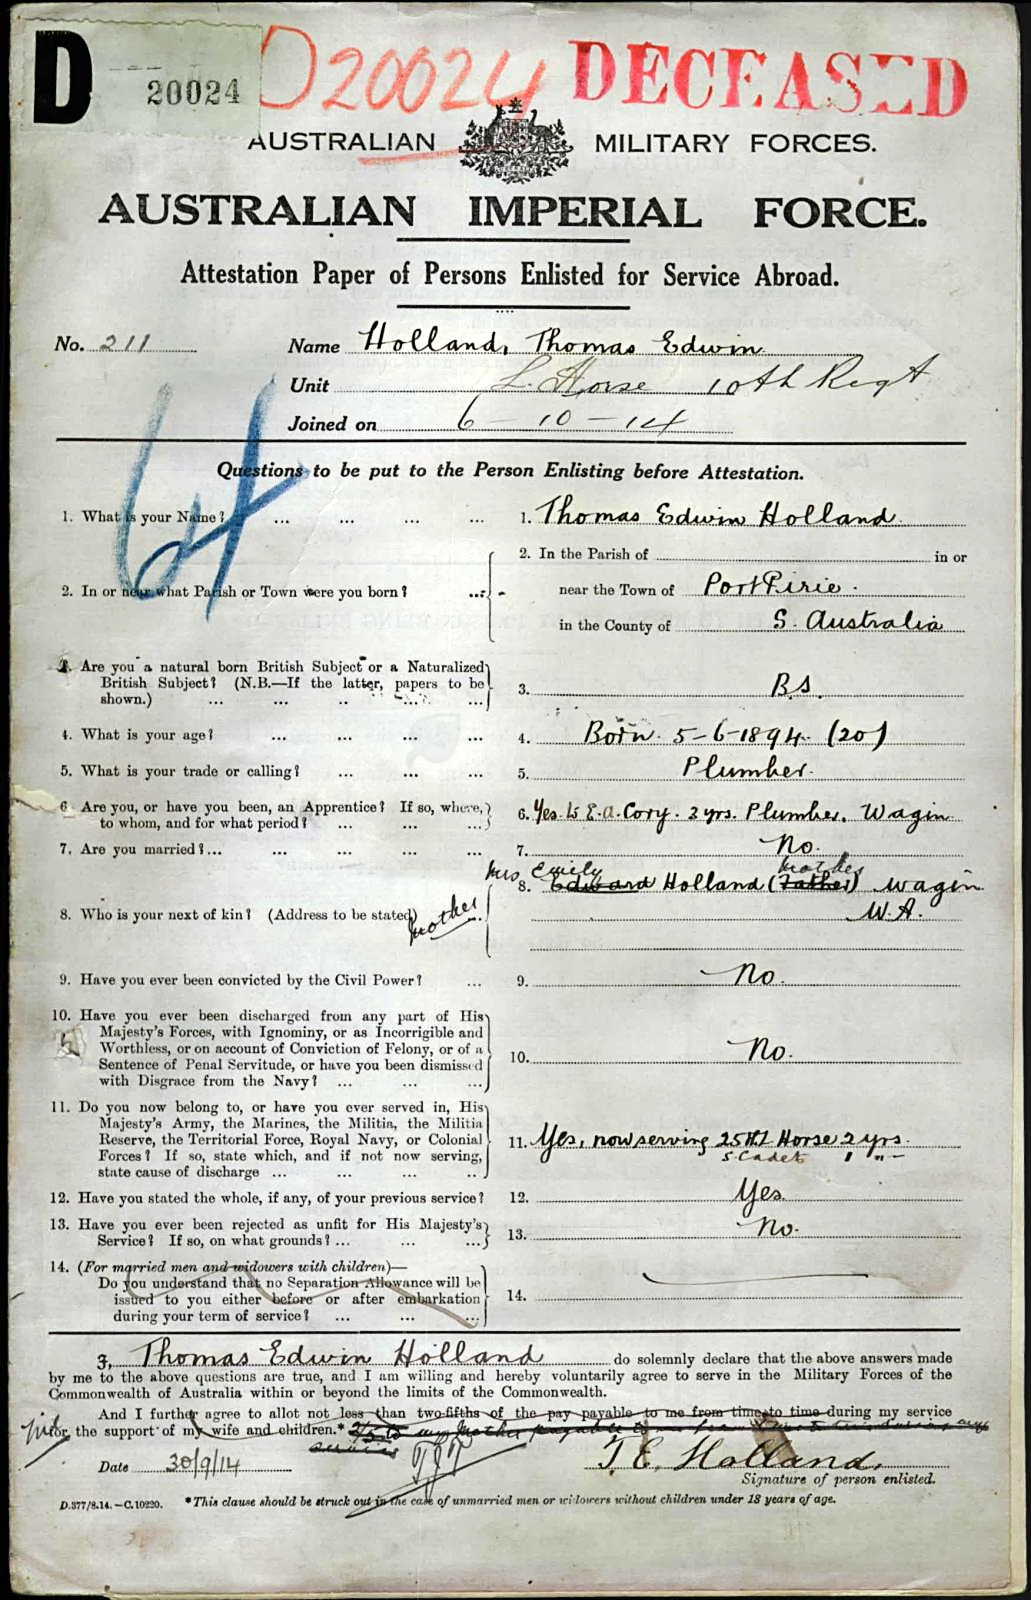 D 20024 D20024 DECEASED
AUSTRALIAN MILITARY FORCES.
AUSTRALIAN IMPERIAL FORCE.
Attestation Paper of Persons Enlisted for Service Abroad.
No. 211 Name Holland, Thomas Edwin
Unit L. Horse 10th Regt
Joined on 6-10-14
64
Questions to be put to the Person Enlisting before Attestation.
1. What is your Name? ... ... ... ... 1. Thomas Edwin Holland.
2. In the Parish of in or
2. In or near what Parish or Town were you born? ... near the Town of Port Pirie.
in the County of S. Australia
3. Are you a natural born British Subject or a Naturalized
British Subject? (N.B.—If the latter, papers to be 3. B.S.
shown.) ... ... ... ... ...
4. What is your age? ... ... ... ... 4. Born. 5-6-1894. (20)
5. What is your trade or calling? ... ... ... 5. Plumber.
6. Are you, or have you been, an Apprentice? If so, where, 6. Yes. to E.A. Cory. 3 yrs. Plumber. Wagin.
to whom, and for what period? ... ... ...
7. Are you married? ... ... ... ... ... 7. No.
Mrs Emily mother
8. Edward Holland (Father) Wagin
8. Who is your next of kin? (Address to be stated) mother W.A.
9. Have you ever been convicted by the Civil Power? ... 9. No.
10. Have you ever been discharged from any part of His
Majesty's Forces, with Ignominy, or as Incorrigible and
Worthless, or on account of Conviction of Felony, or of a 10. No.
Sentence of Penal Servitude, or have you been dismissed
with Disgrace from the Navy? ... ... ...
11. Do you now belong to, or have you ever served in, His
Majesty's Army, the Marines, the Militia, the Militia
Reserve, the Territorial Force, Royal Navy, or Colonial 11. Yes, now serving 25th L Horse 2 yrs.
Forces? If so, state which, and if not now serving, S. Cadets 1 " -
state cause of discharge ... ... ... ...
12. Have you stated the whole, if any, of your previous service? 12. Yes.
13. Have you ever been rejected as unfit for His Majesty's
Service? If so, on what grounds? ... ... ... 13. No.
14. (For married men and widowers with children)—
Do you understand that no Separation Allowance will be
issued to you either before or after embarkation 14.
during your term of service? ... ... ...
I, Thomas Edwin Holland do solemnly declare that the above answers made
by me to the above questions are true, and I am willing and hereby voluntarily agree to serve in the Military Forces of the
Commonwealth of Australia within or beyond the limits of the Commonwealth.
And I further agree to allot not less than two-fifths of the pay payable to me from time to time during my service
for the support of my wife and children.* 2/5 to my Mother payable to me from time to time during my
service
Date 30/9/14 T. E. Holland.
Signature of person enlisted.
D.377/8.14.—C.10220. *This clause should be struck out in the case of unmarried men or widowers without children under 18 years of age.